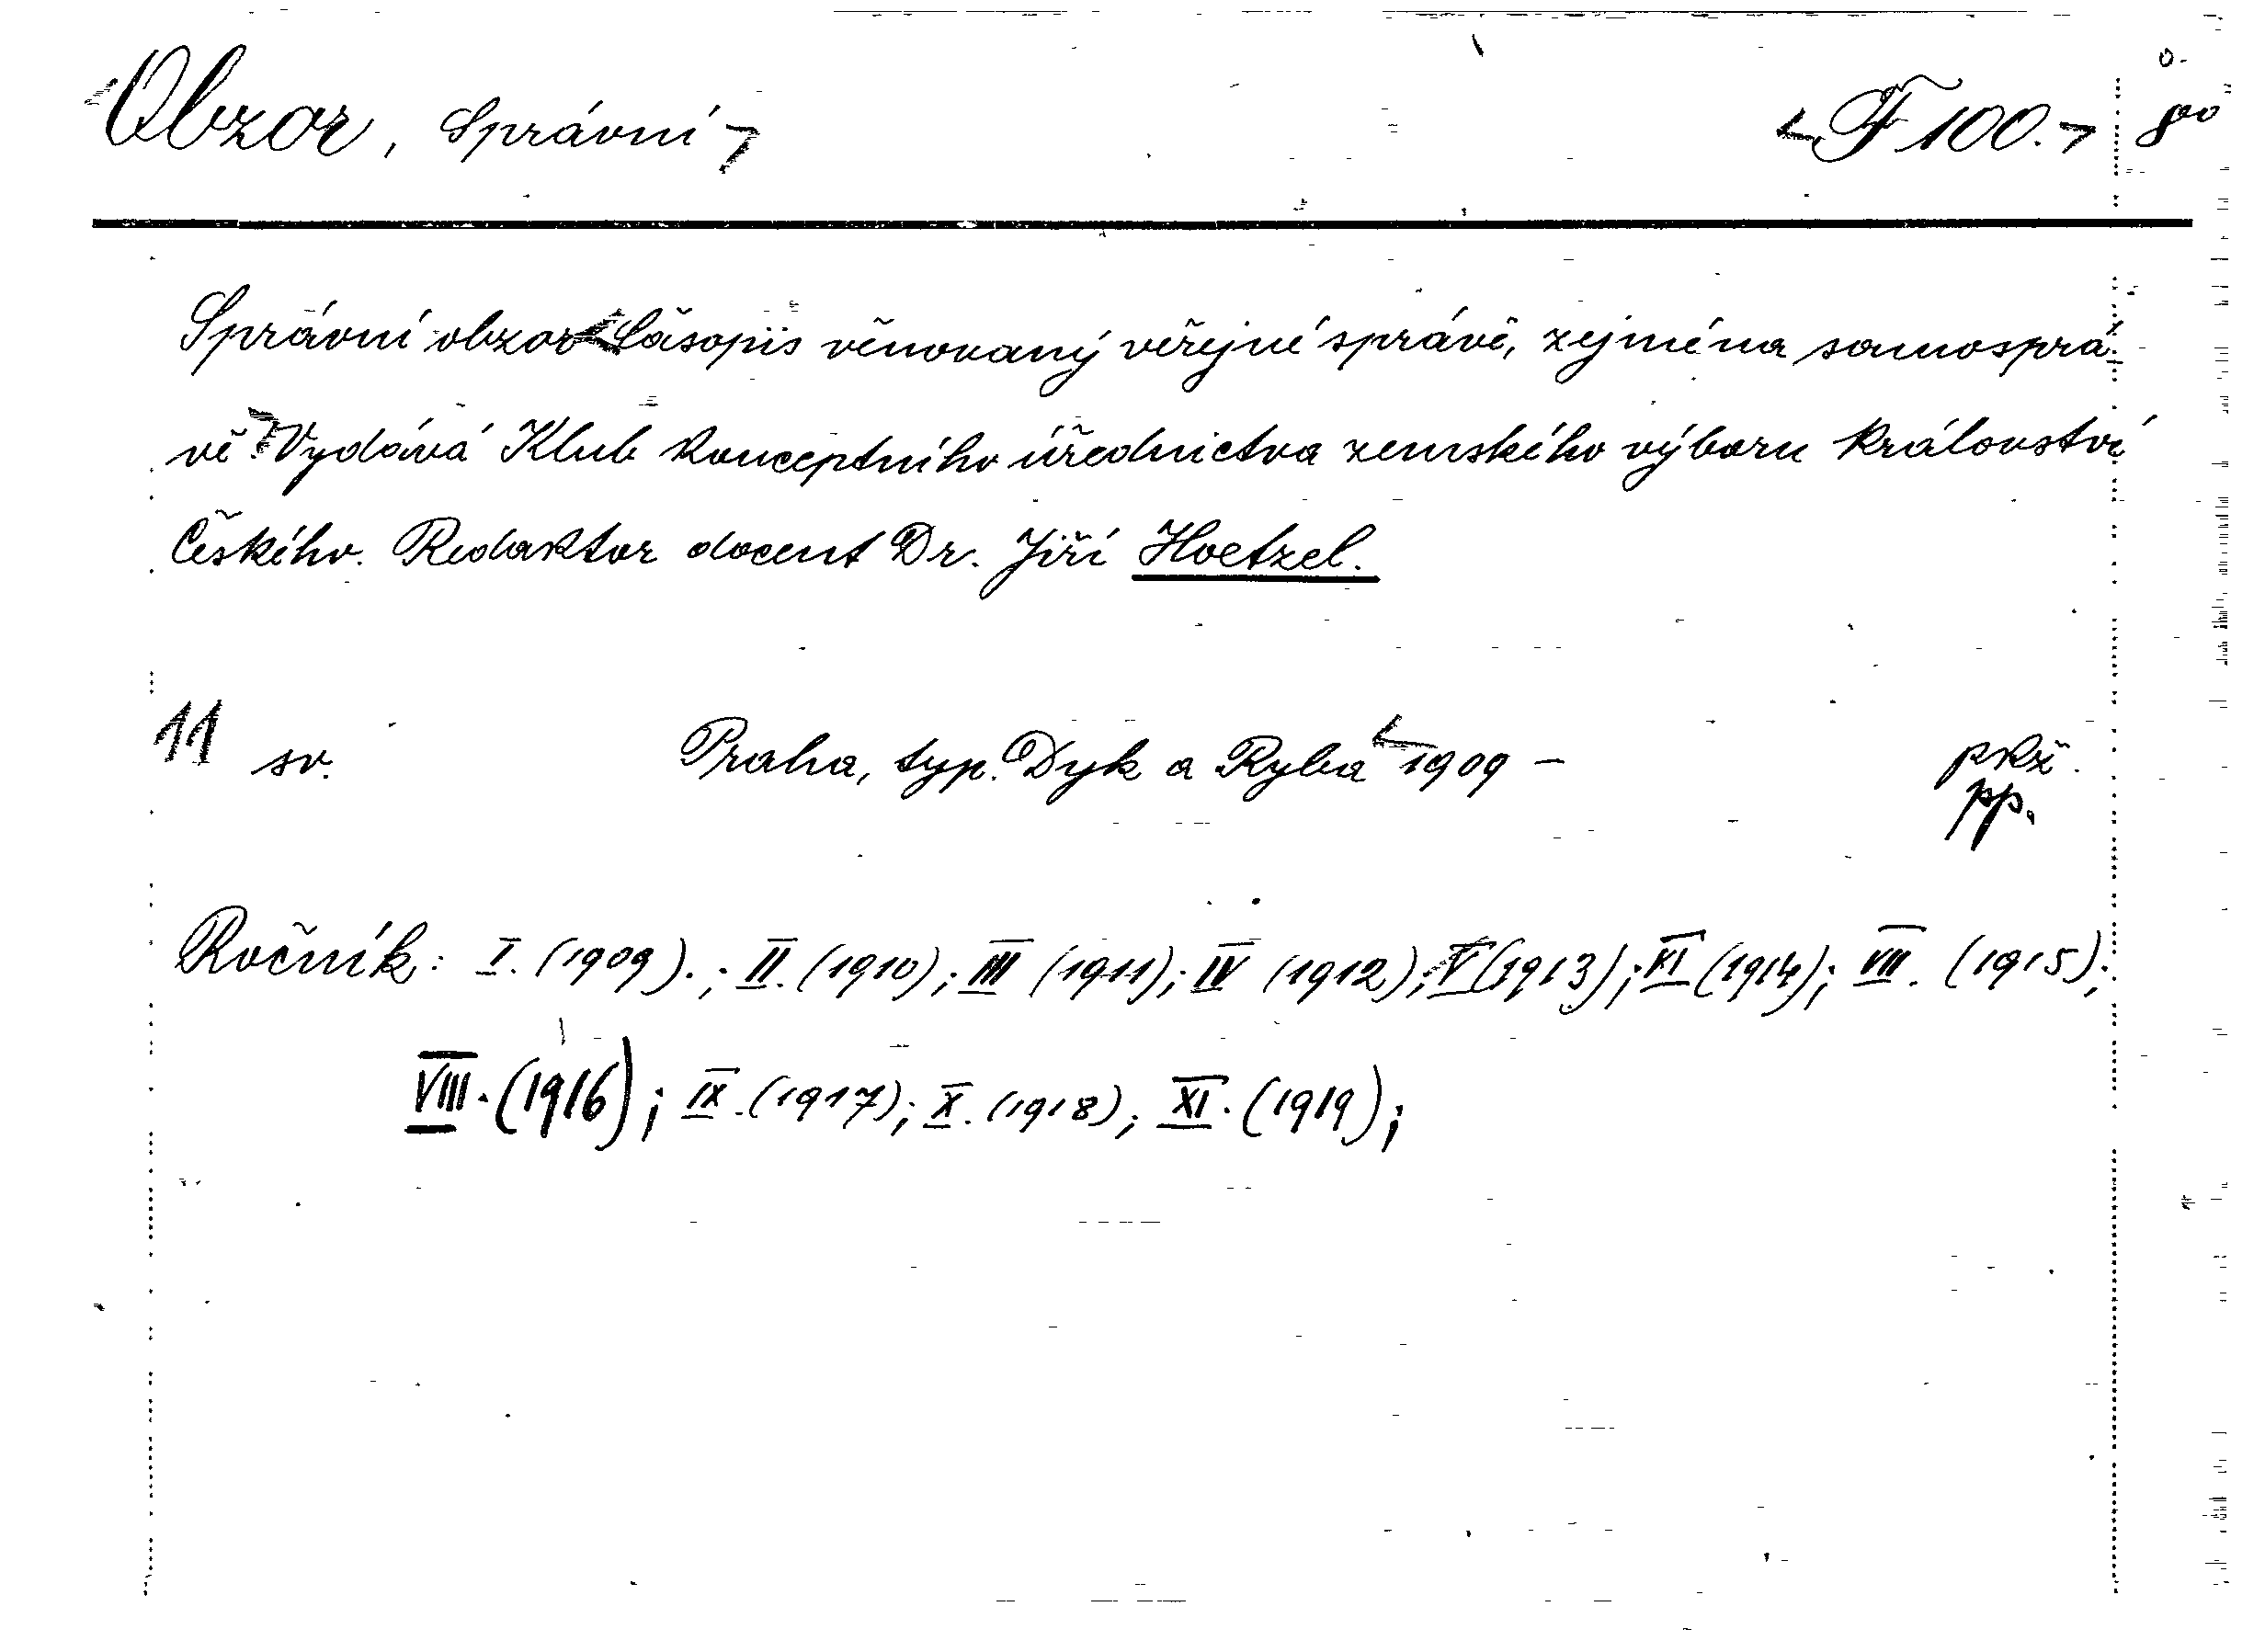 Obzor, Správní F 100. 8°
Správní obzor Časopis věnovaný veřejné správě, zejména samosprá-
vě. Vydává Klub konceptního úřednictva zemského výboru království
Českého. Redaktor docent Dr. Jiří Hoetzel.
11 sv. Praha, typ. Dyk a Ryba 1909 – pkž.
pp.
Ročník: I. (1909).; II. (1910); III (1911); IV (1912); V (1913); VI (1914); VII. (1915);
VIII. (1916); IX. (1917); X. (1918); XI. (1919);